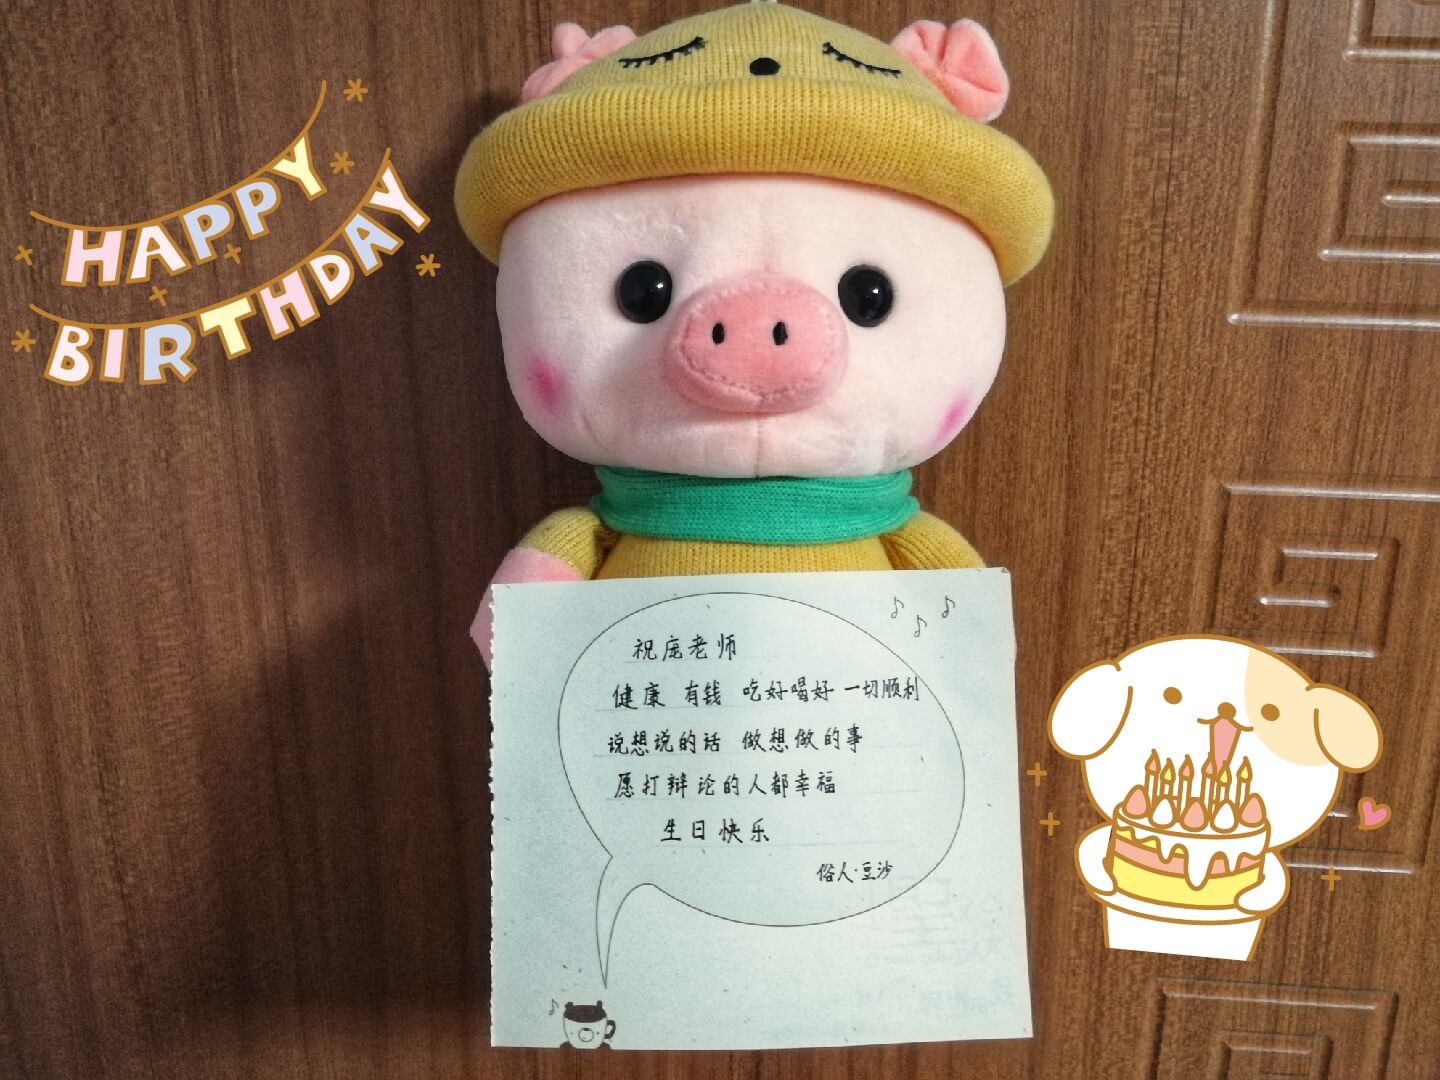 HAPPY
BIRTHDAY
祝庞老师
健康 有钱 吃好喝好 一切顺利
说想说的话 做想做的事
愿打辩论的人都幸福
生日快乐
俗人·豆沙